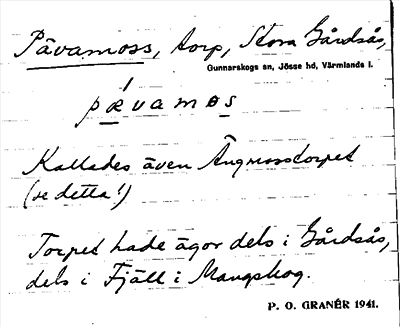 Påvamoss, torp, Stora Gårdsås,
Gunnarskogs sn, Jösse hd, Värmlands l.
pǽvamɵs
Kallades även Ängmosstorpet
(se detta!)
Torpet hade ägor dels i Gårdsås,
dels i Fjäll i Mangskog.
P. O. GRANÉR 1941.